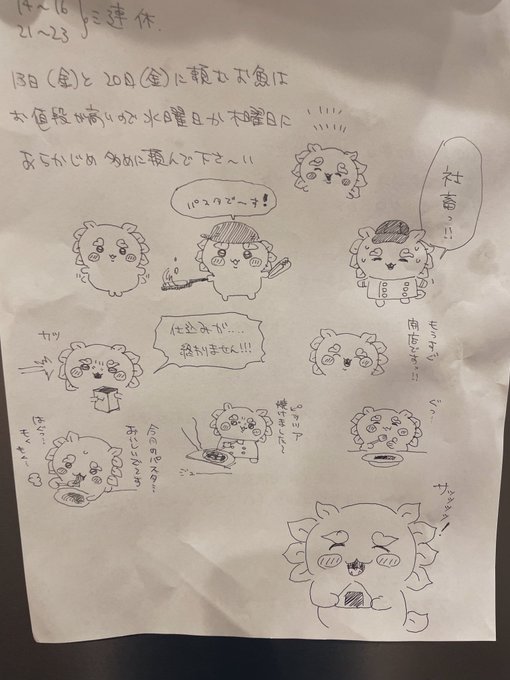 14〜16
21〜23 } 三連休.
13日(金)と20日(金)に頼むお魚は
お値段が高いので水曜日か木曜日に
あらかじめ多めに頼んで下さ〜い
社畜っ!!
パスタで〜す!
仕込みが....
終わりません!!!
もうすぐ
開店ですっ!!
ピッツァ
焼けました〜
ジュー
今日のパスタ...
おいしいな〜